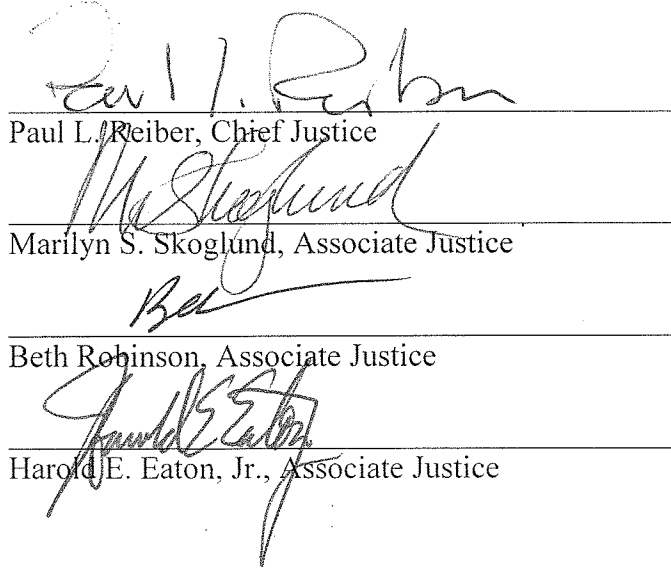 Paul L. Reiber
Paul L. Reiber, Chief Justice
MSkoglund
Marilyn S. Skoglund, Associate Justice
Beth Robinson, Associate Justice
Harold E Eaton
Harold E. Eaton, Jr., Associate Justice